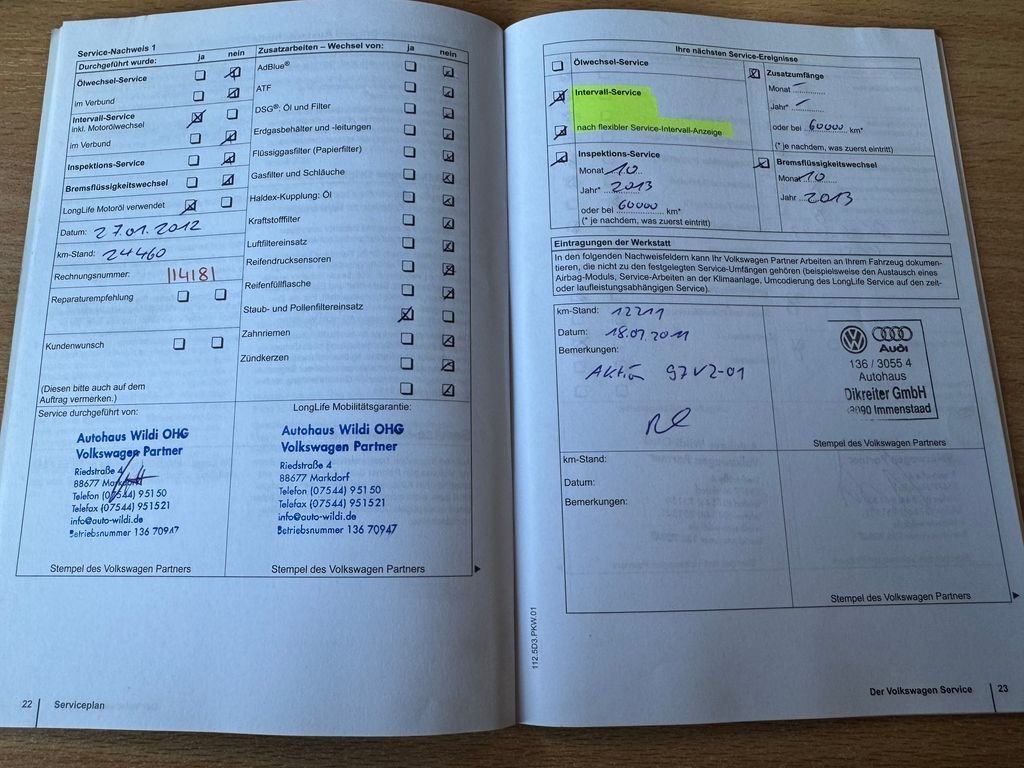 Service-Nachweis 1
Durchgeführt wurde: ja nein
Ölwechsel-Service
im Verbund
Intervall-Service
inkl. Motorölwechsel
im Verbund
Inspektions-Service
Bremsflüssigkeitswechsel
LongLife Motoröl verwendet
Datum: 27.01.2012
km-Stand: 24460
Rechnungsnummer: 114181
Reparaturempfehlung
Kundenwunsch
(Diesen bitte auch auf dem
Auftrag vermerken.)
Zusatzarbeiten – Wechsel von: ja nein
AdBlue®
ATF
DSG®: Öl und Filter
Erdgasbehälter und -leitungen
Flüssiggasfilter (Papierfilter)
Gasfilter und Schläuche
Haldex-Kupplung: Öl
Kraftstofffilter
Luftfiltereinsatz
Reifendrucksensoren
Reifenfüllflasche
Staub- und Pollenfiltereinsatz
Zahnriemen
Zündkerzen
Service durchgeführt von:
Autohaus Wildi OHG
Volkswagen Partner
Riedstraße 4
88677 Markdorf
Telefon (07544) 951 50
Telefax (07544) 951521
info@auto-wildi.de
Betriebsnummer 136 70947
Stempel des Volkswagen Partners
LongLife Mobilitätsgarantie:
Autohaus Wildi OHG
Volkswagen Partner
Riedstraße 4
88677 Markdorf
Telefon (07544) 951 50
Telefax (07544) 951521
info@auto-wildi.de
Betriebsnummer 136 70947
Stempel des Volkswagen Partners
22 Serviceplan
Ihre nächsten Service-Ereignisse
Ölwechsel-Service
Intervall-Service
nach flexibler Service-Intervall-Anzeige
Zusatzumfänge
Monat
Jahr*
oder bei 60000 km*
(* je nachdem, was zuerst eintritt)
Inspektions-Service
Monat 10
Jahr* 2013
oder bei 60000 km*
(* je nachdem, was zuerst eintritt)
Bremsflüssigkeitswechsel
Monat 10
Jahr 2013
Eintragungen der Werkstatt
In den folgenden Nachweisfeldern kann Ihr Volkswagen Partner Arbeiten an Ihrem Fahrzeug dokumen-
tieren, die nicht zu den festgelegten Service-Umfängen gehören (beispielsweise den Austausch eines
Airbag-Moduls, Service-Arbeiten an der Klimaanlage, Umcodierung des LongLife Service auf den zeit-
oder laufleistungsabhängigen Service).
km-Stand: 12211
Datum: 18.07.2011
Bemerkungen:
Aktion 97V2-01
Audi
136 / 3055 4
Autohaus
Dikreiter GmbH
88090 Immenstaad
Stempel des Volkswagen Partners
km-Stand:
Datum:
Bemerkungen:
Stempel des Volkswagen Partners
112.5D3.PKW.01
Der Volkswagen Service 23